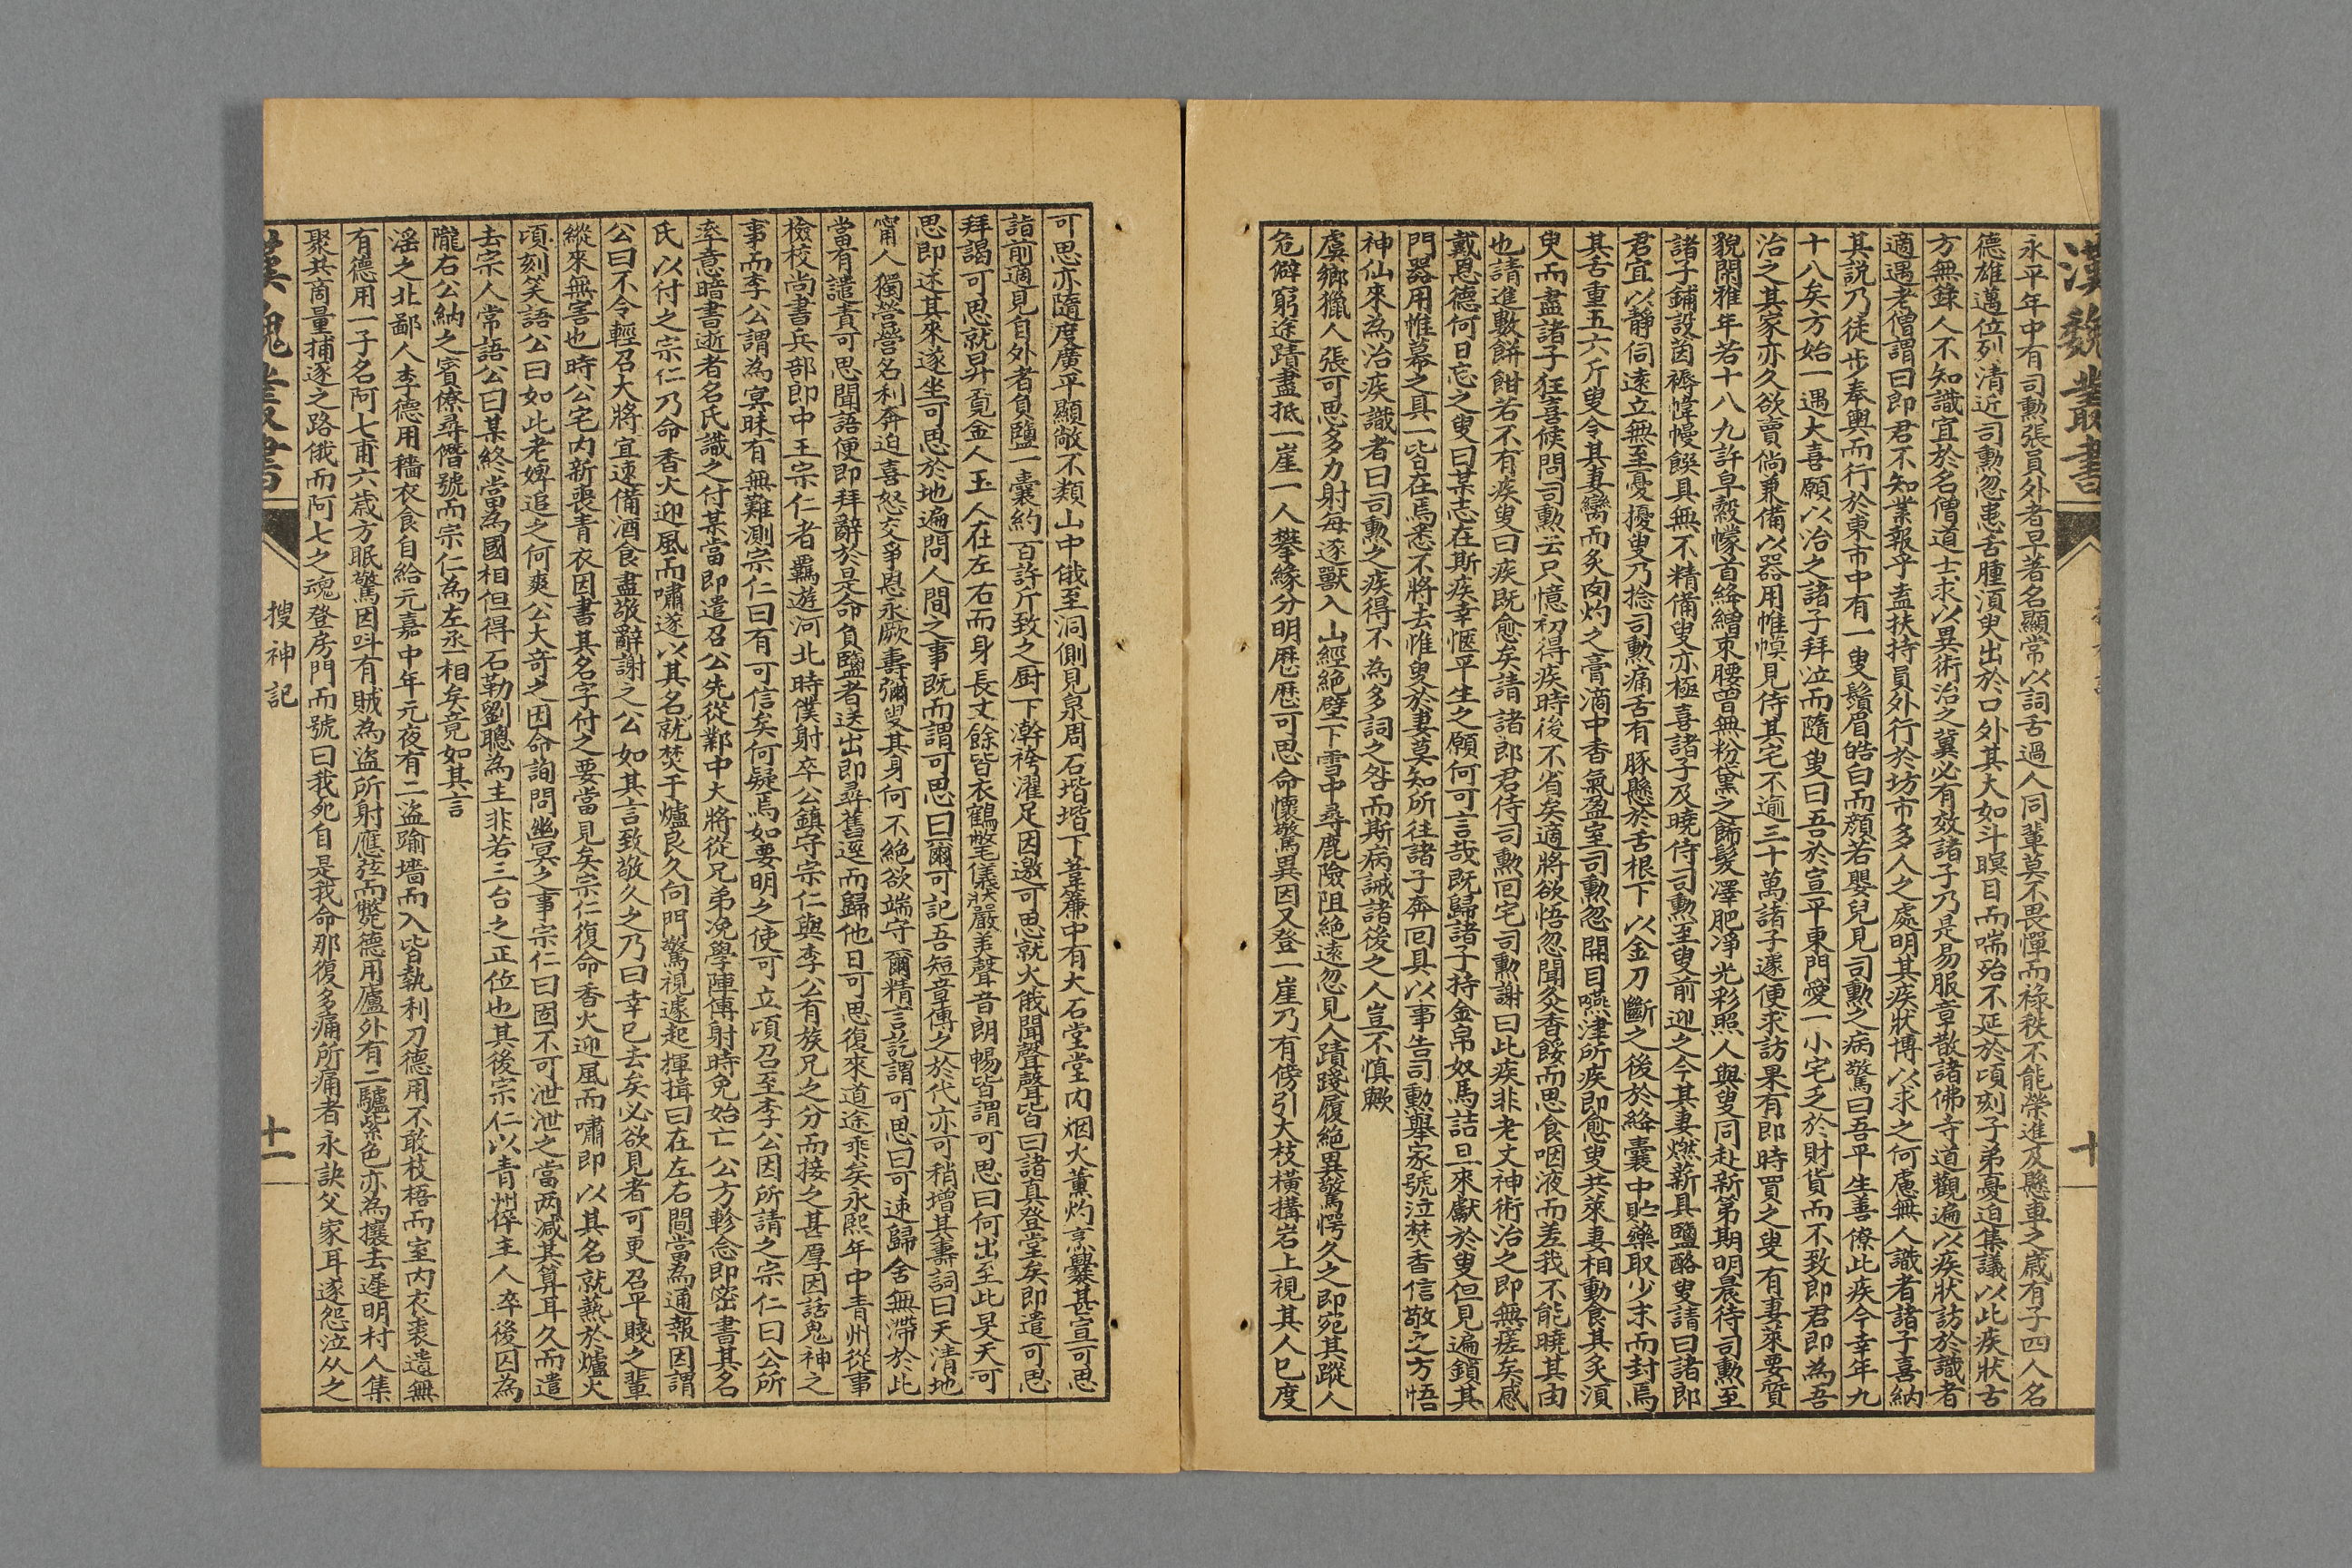 漢魏叢書
十
永平年中有司勳張員外者早著名顯常以詞舌過人同輩莫不畏憚而祿秩不能榮進及懸車之歲有子四人名
德雄邁位列清近司勳忽患舌腫湏臾出於口外其大如斗瞑目而喘殆不延於頃刻子弟憂迫集議以此疾狀古
方無錄人不知識宜於名僧道士求以異術治之冀必有效諸子乃是易服章散諸佛寺道觀遍以疾狀訪於識者
適遇老僧謂曰即君不知業報乎盍扶持員外行於坊市多人之處明其疾狀博以求之何慮無人識者諸子喜納
其説乃徒步奉輿而行於東市中有一叟鬚眉皓白而顔若嬰兒見司勳之病驚曰吾平生善僚此疾今幸年九
十八矣方始一遇大喜願以治之諸子拜泣而隨叟曰吾於宣平東門愛一小宅之於財貨而不致即君即為吾
治之其家亦久欲賣倘兼備以器用帷幙見侍其宅不逾三十萬諸子遽便求訪果有即時買之叟有妻萊要質
貌閑雅年若十八九許皁縠幪首絳繒束腰曾無粉黛之飾髮澤肥凈光彩照人與叟同赴新第期明晨待司勳至
諸子鋪設茵褥幃幔饌具無不精備叟亦極喜諸子及曉侍司勳至叟前迎之今其妻燃薪具鹽酪叟請曰諸郎
君宜以靜伺遠立無至憂擾叟乃捻司勳痛舌有豚懸於舌根下以金刀斷之後於絳囊中貯藥取少末而封焉
其舌重五六斤叟令其妻臠而炙肉灼之膏滴中香氣盈室司勳忽開目嚥津所疾即愈叟共萊妻相動食其炙湏
臾而盡諸子狂喜候問司勳云只憶初得疾時後不省矣適將欲悟忽聞灸香餒而思食咽液而差我不能曉其由
也請進數餅餌若不有疾叟曰疾既愈矣請諸郎君侍司勳回宅司勳謝曰此疾非老丈神術治之即無瘥矣感
戴恩德何日忘之叟曰某志在斯疾幸愜平生之願何可言哉既歸諸子持金帛奴馬詰旦來獻於叟但見遍鎖其
門器用惟幕之具一皆在焉悉不將去惟叟於妻莫知所往諸子奔回具以事告司勳舉家號泣焚香信敬之方悟
神仙來為治疾識者曰司勳之疾得不為多詞之咎而斯病誡諸後之人豈不慎歟
虞鄉獵人張可思多力射每逐獸入山經絕壁下雪中尋鹿險阻絕遠忽見人蹟踐履絕異驚愕久之即宛其蹤人
危僻窮途蹟盡抵一崖一人攀緣分明歷歷可思命懷驚異因又登一崖乃有傍引大枝橫搆岩上視其人已度
可思亦隨度廣平顯敞不類山中俄至洞側見泉周石堦堦下葦簾中有大石堂堂內烟火薰灼烹爨甚宣可思
詣前適見自外者負鹽一囊約百許斤致之厨下澣袴濯足因邀可思就火俄聞聲聲皆曰諸真登堂矣即遣可思
拜謁可思就昇竟金人玉人在左右而身長丈餘皆衣鶴氅儀狀嚴美聲音朗暢皆謂可思曰何出至此旻天可
思即述其來遂坐可思於地遍問人間之事既而謂可思曰爾可記吾短章傳之於代亦可稍增其壽詞曰天清地
甯人獨營營名利奔迫喜怒交爭恩永厥壽彌叟其身何不絕欲端守爾精言訖謂可思曰可速歸舍無滯於此
當有譴責可思聞語便即拜辭於是命負鹽者送出即尋舊逕而歸他日可思復來道途乖矣永熙年中青州從事
檢校尚書兵部即中王宗仁者羈遊河北時僕射卒公鎮守宗仁與李公有族兄之分而接之甚厚因話鬼神之
事而李公謂為冥昧有無難測宗仁曰有可信矣何疑焉如要明之使可立頃召至李公因所請之宗仁曰公所
率意暗書逝者名氏識之付某當即遣召公先從鄴中大將從兄弟浼學陣傳射時免始亡公方軫念即密書其名
氏以付之宗仁乃命香火迎風而嘯遂以其名就焚于爐良久向門驚視遽起揮揖曰在左右間當為通報因謂
公曰不令輕召大將宜速備酒食盡敬辭謝之公如其言致敬久之乃曰幸已去矣必欲見者可更召平賤之輩
縱來無害也時公宅內新喪青衣因書其名字付之要當見矣宗仁復命香火迎風而嘯即以其名就爇於爐火
頃刻笑語公曰如此老婢追之何爽公大奇之因命詢問幽冥之事宗仁曰固不可泄泄之當兩減其算耳久而遣
去宗人常語公曰某終當為國相但得石勒劉聰為主非若三台之正位也其後宗仁以青州倅主人卒後因為
隴右公納之賓僚尋僭號而宗仁為左丞相矣竟如其言
滛之北鄙人李德用穡衣食自給元嘉中年元夜有二盜踰墻而入皆執利刀德用不敢枝梧而室內衣裘遺無
有德用一子名阿七甫六歲方眠驚因呌有賊為盜所射應弦而斃德用廬外有二驢紫色亦為攘去遲明村人集
聚共商量捕逐之路俄而阿七之魂登房門而號曰我死自是我命那復多痛所痛者永訣父家耳遂怨泣久之
漢魏叢書
搜神記
十一